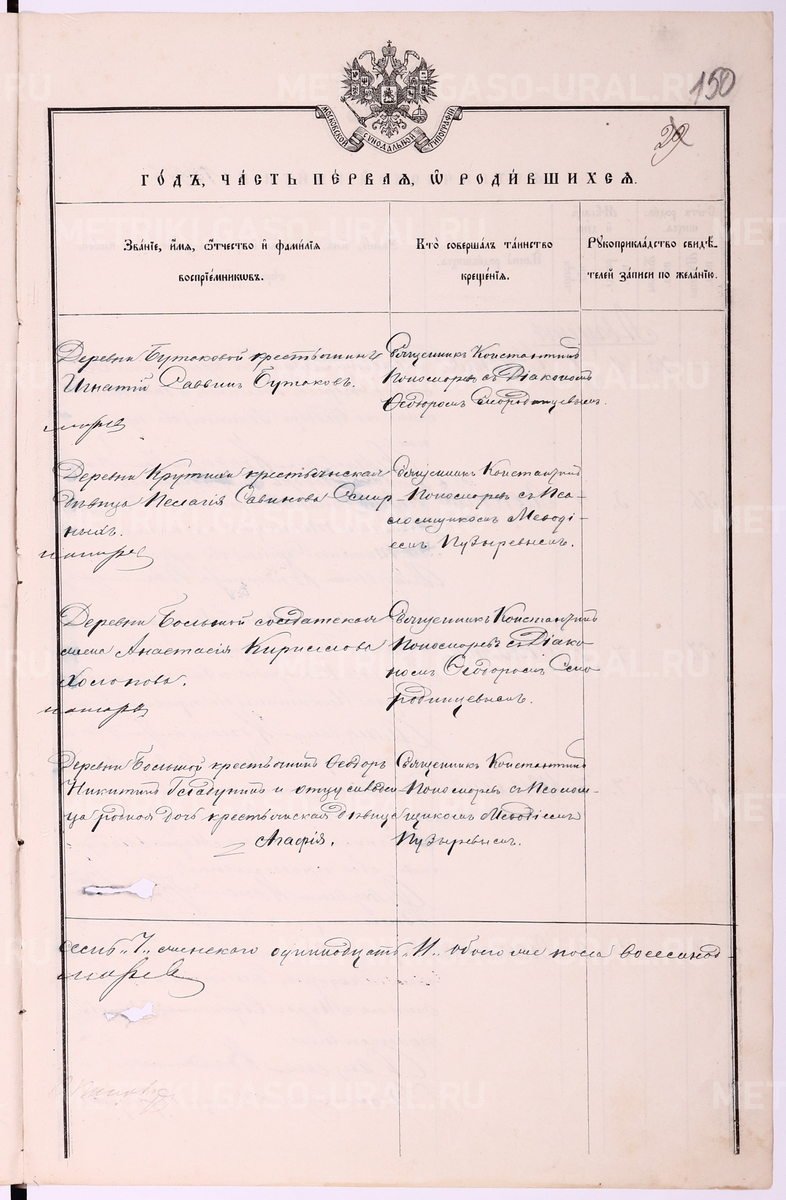 150
29
МОСКОВСКОЙ СѴНОДАЛЬНОЙ ТИПОГРАФІИ
ГО́ДЪ, ЧА́СТЬ ПЕ́РВАЯ, Ѿ РОДИ́ВШИХСЯ.
Зва́ніе, и́мя, ѻ҆́тчество и҆ фами́лія
воспріе́мниковъ.
Кто̀ соверша́лъ та́инство
креще́нія.
Рꙋкоприкла́дство свидѣ́-
телей за́писи по жела́нію.
Деревни Бутаковой крестьянинъ
Игнатій Саввинъ Бутаковъ.
Священникъ Константинъ
Пономаревъ съ Діакономъ
Ѳеодоромъ Смородинцевымъ.
Деревни Крутихи крестьянская
дѣвица Пелагія Савинова
ныхъ.
Священникъ Константинъ
Пономаревъ съ Пса-
ломщикомъ Меѳоді-
емъ Пузыревымъ.
Деревни Большой солдатская
жена Анастасія Кириллова
Холопова.
Священникъ Константинъ
Пономаревъ съ Діако-
номъ Ѳеодоромъ Смо-
родинцевымъ.
Деревни Большой крестьянинъ Ѳеодоръ
Никитинъ и отцу
ца родная дочь крестьянская дѣвица
Агафія.
Священникъ Константинъ
Пономаревъ съ Псалом-
щикомъ Меѳодіемъ
Пузыревымъ.
семь „7„ женскаго одиннадцать „11„ обоего же пола восемнад-
METRIKI.GASO-URAL.RU